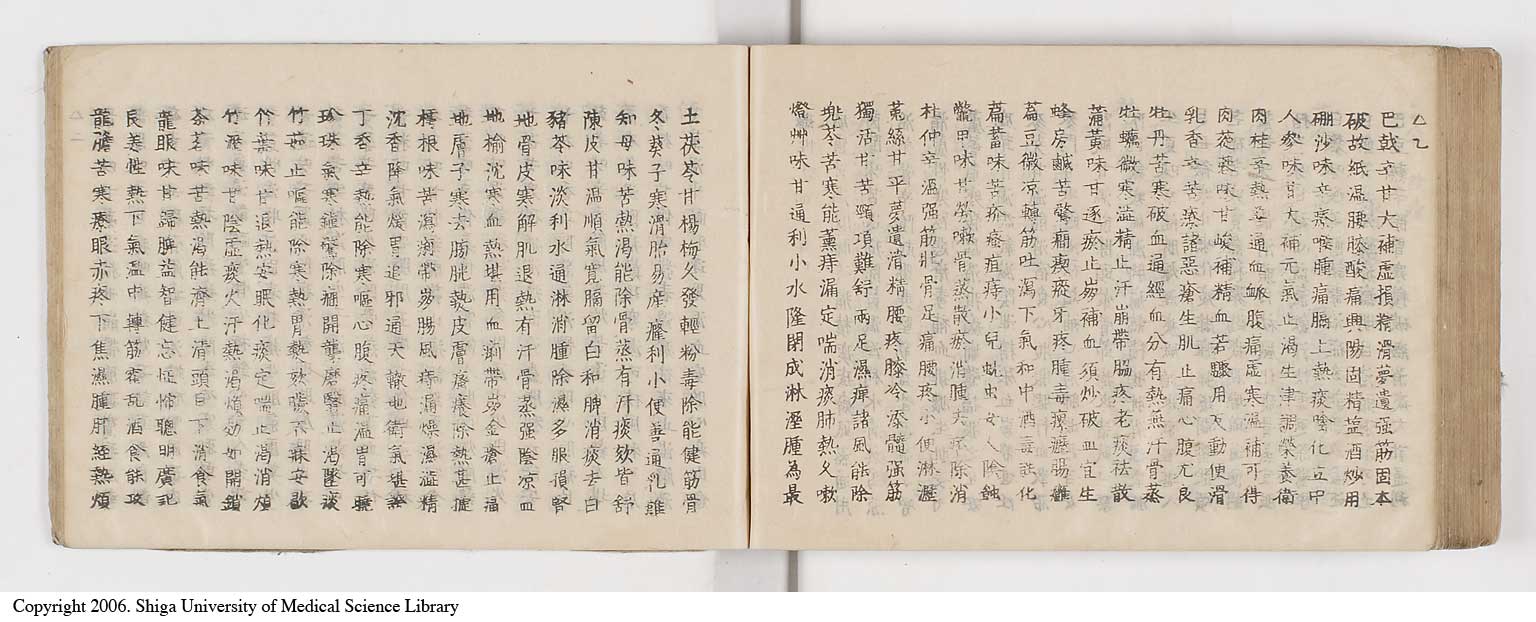 巴戟辛甘大補虚損精滑夢遺强筋固本
破故紙温腰膝酸痛興陽固精塩酒炒用
硼沙味辛療喉腫痛膈上熱痰噙化立中
人參味甘大補元氣止渴生津調榮養衛
肉桂辛熱善通血脉腹痛虚寒温補可得
肉蓯蓉味甘峻補精血若驟用反動便滑
乳香辛苦療諸惡瘡生肌止痛心腹尤良
牡丹苦寒破血通經血分有熱無汗骨蒸
牡蠣微寒澁精止汗崩帶脇疼老痰祛散
蒲黄味甘逐瘀止崩補血須炒破血宜生
蜂房鹹苦驚癇瘈瘲牙疼腫毒瘰癧腸癰
萹豆微凉轉筋吐瀉下氣和中酒毒能化
萹蓄味苦疥瘙疽痔小兒蚘虫女人陰蝕
杜仲辛温强筋壯骨足痛腰疼小便淋瀝
鱉甲味甘勞嗽骨蒸散瘀消腫去痞除消
菟絲甘平夢遺滑精腰疼膝冷添髓强筋
獨活甘苦頸項難舒兩足濕痺諸風能除
黄芩苦寒能薰痔漏定喘消痰肺熱久嗽
燈艸味甘通利小水隆閉成淋溼腫為最
土茯苓甘楊梅久發輕粉毒除能健筋骨
冬葵子寒滑胎易産癃利小便善通乳難
知母味苦熱渴能除骨蒸有汗痰欬皆舒
陳皮甘温順氣寬膈留白和脾消痰去白
豬苓味淡利水通淋消腫除濕多服損腎
地骨皮寒解肌退熱有汗骨蒸强陰凉血
地榆沈寒血熱堪用血痢帶崩金瘡止痛
地膚子寒去膀胱熱皮膚瘙癢除熱甚捷
樗根味苦瀉痢帶崩腸風痔漏燥濕澁精
沈香降氣煖胃追邪通天徹地衛氣堪誇
丁香辛熱能除寒嘔心腹疼痛温胃可曉
珍珠氣寒鎮驚除癇開聾磨翳止渴墜痰
竹茹止嘔能除寒熱胃熱欬噦不寐安歇
竹葉味甘退熱安眠化痰定喘止渴消煩
竹瀝味甘陰虚痰火汗熱渴煩効如開鎖
茶茗味苦熱渴能濟上清頭目下消食氣
龍眼味甘歸脾益智健忘怔忡聰明廣記
良姜性熱下氣温中轉筋霍乱酒食能攻
龍膽苦寒療眼赤疼下焦濕腫肝經熱煩